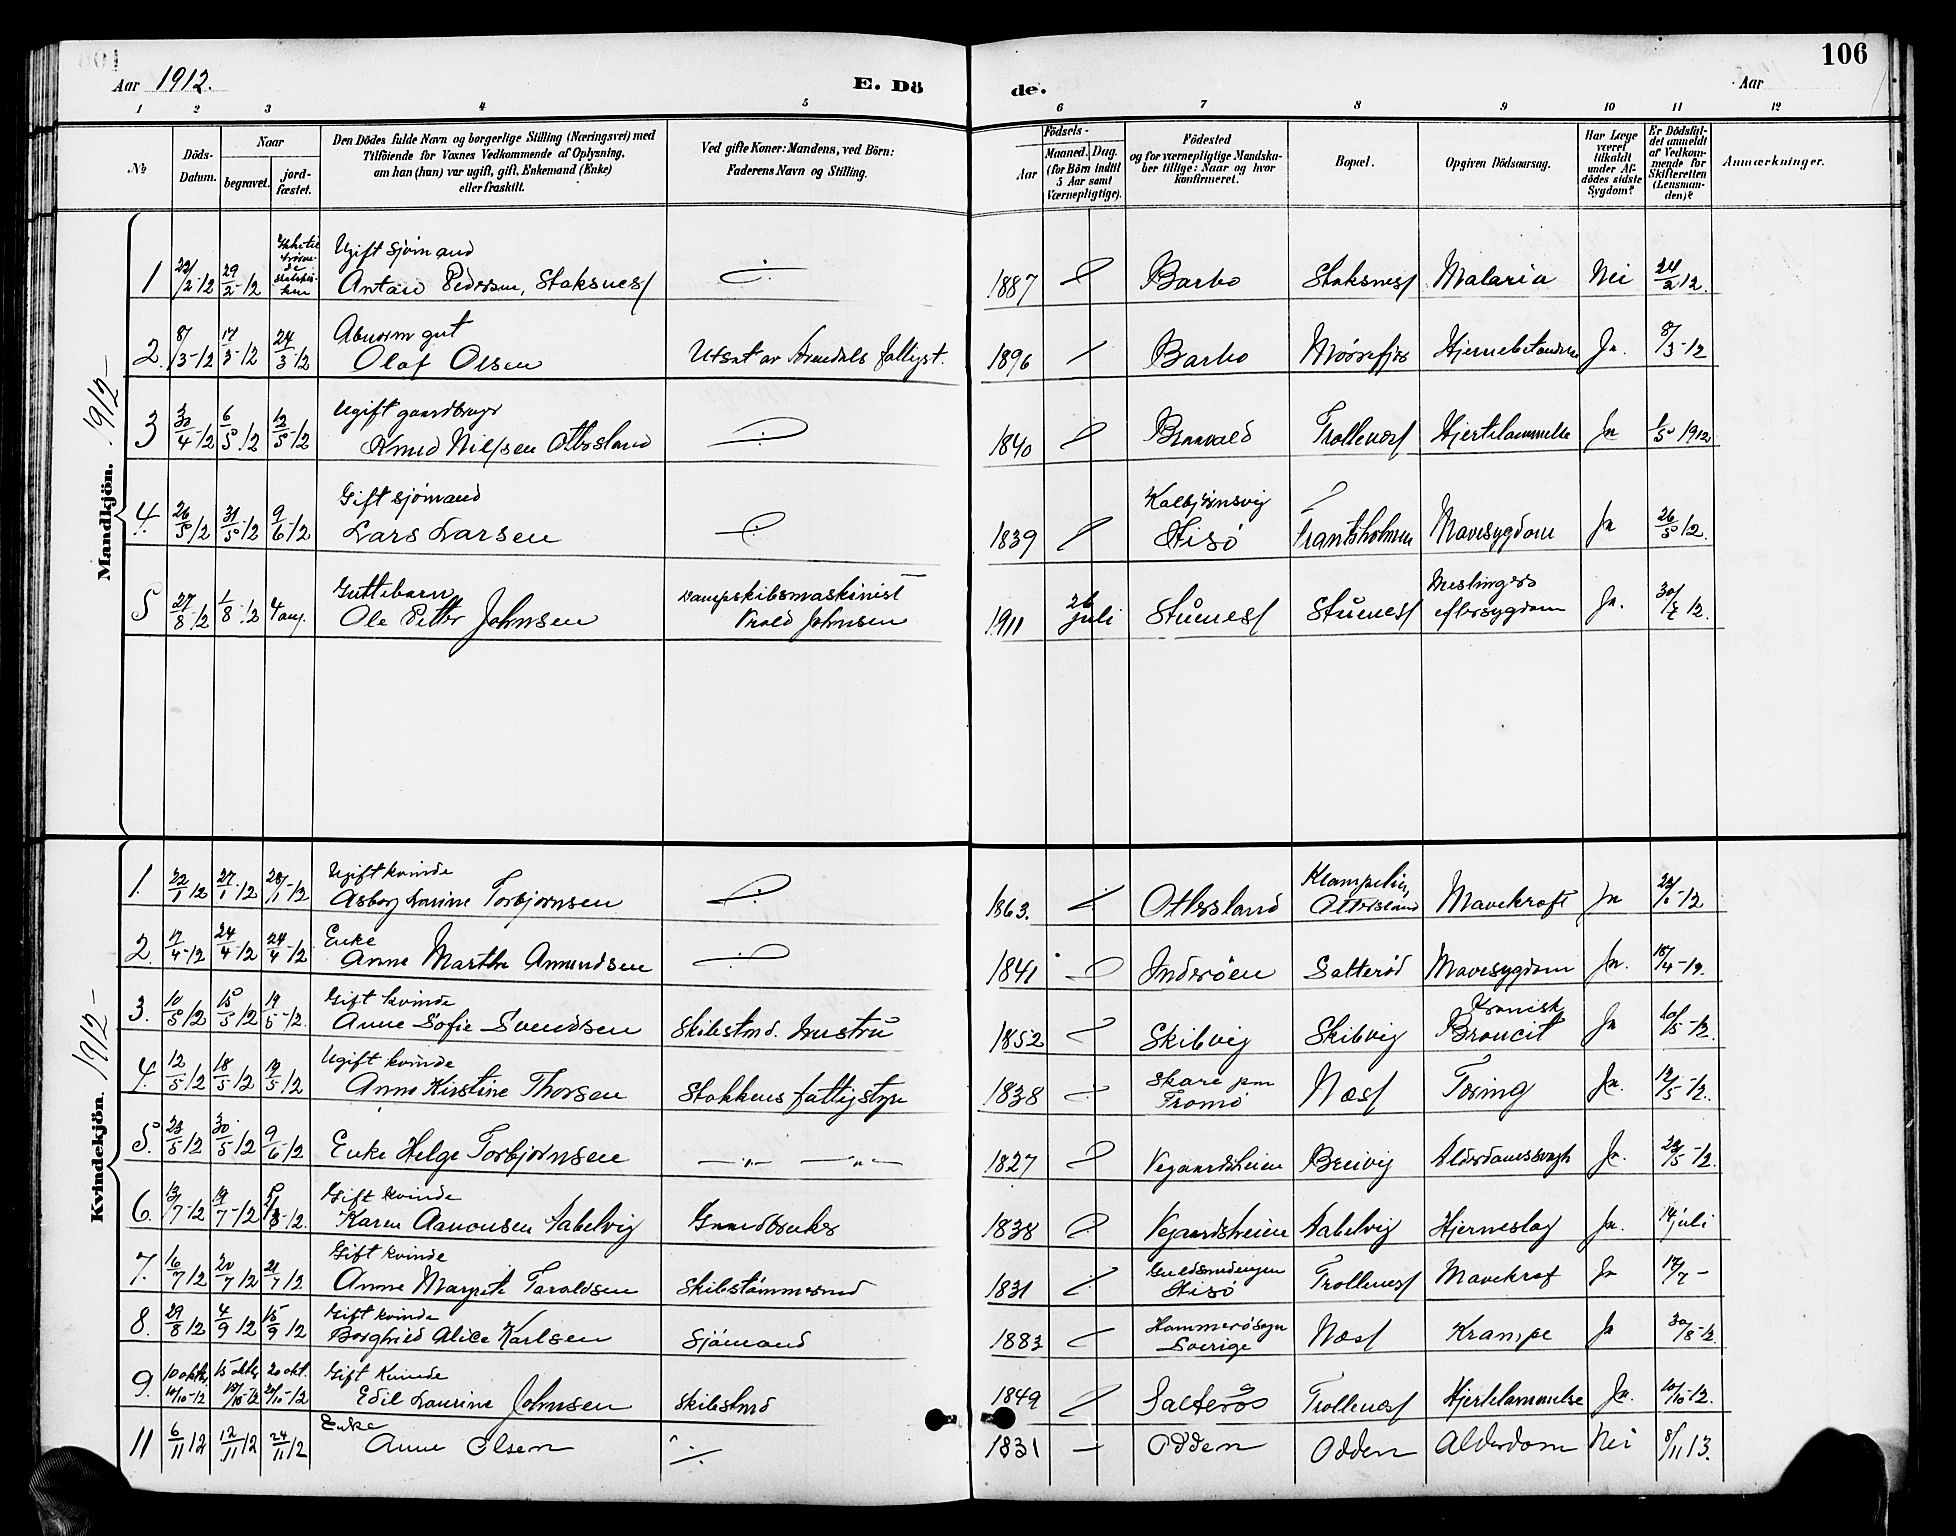 106
Aar 1912.
E. Dö
de.
Aar
1 2 3 4 5 6 7 8 9 10 11 12
No
Döds-
Datum.
Naar
begravet.
jord-
fæstet.
Den Dödes fulde Navn og borgerlige Stilling (Næringsvei) med
Tilföiende for Voxnes Vedkommende af Oplysning,
om han (hun) var ugift, gift, Enkemand (Enke)
eller fraskilt.
Ved gifte Koner: Mandens, ved Börn:
Faderens Navn og Stilling.
Födsels-
Aar
Maaned. Dag.
(for Börn indtil
5 Aar samt
Værnepligtige).
Födested
og for værnepligtige Mandska-
ber tillige: Naar og hvor
konfirmeret.
Bopæl.
Opgiven Dödsaarsag.
Har Læge
været
tilkaldt
under Af-
dödes sidste
Sygdom?
Er Dödsfal-
det anmeldt
af Vedkom-
mende for
Skifteretten
(Lensman-
den)?
Anmærkninger.
Mandkjön. 1912-
1 22/2 12 29/2-12 Ugift sjömand
Pedersen, Staksnes 1887 Barbo Staksnes Malaria Nei 24/2 12.
2. 8/3-12 17/3-12 24/3-12 Abnorm gut
Olaf Olsen Utsat av Arendals fattigst. 1896 Barbo Ja. 8/3-12
3 30/4-12 6/5 12 12/5-12 Ugift gaardbruger
Knud Nilsen Ottersland 1840 Trollenes Hjertelammelse Ja 1/5 1912
4. 26/5 12 31/5-12 9/6-12 Gift sjömand
Lars Larsen 1839 Kolbjörnsvig
Hisö Mavesygdom Ja 26/5 12.
5 27/8-12 1/8-12 4 aug. Guttebarn
Ole Petter Johnsen Dampskibsmaskinist
Johnsen 1911 26 juli Stuenes Stuenes Meslinger
eftersygdom Ja. 30/7 12.
Kvindekjön. 1912-
1. 22/1 12 27/1-12 28/1-12 Ugift kvinde
Asborg Laurine Torbjornsen 1863. Ottersland Klampelier,
Ottersland Mavekræft Ja
2. 17/4-12 24/4-12 24/4-12 Enke
Anne Marthe Amundsen 1841 Inderöen Salteröd Mavesygdom Ja. 18/4-12.
3. 10/5 12 15/5 12 19/5-12. Gift kvinde
Anne Sofie Svendsen Skibstmd. hustru 1852 Skilvig Skilvig Kronisk
Broncit Ja 10/5-12.
4. 12/5 12 18/5 12 19/5 12 Ugift kvinde
Anne Kirstine Thorsen Stokkens fattigstyr 1838 Skare
Tromö Næs Tæring Ja. 12/5-12.
5. 23/5 12 30/5 12 9/6 12 Enke Helge Torbjornsen —„— —„— 1827 Vegaardsheien Brevig Ja.
6. 13/7-12 19/7-12 Gift kvinde
Karen Aanonsen Sabelvig Gaardbruker 1838 Vegaardsheien Sabelvig Hjerneslag Ja. 14 juli
7. 16/7 12 20/7 12 21/7 12. Gift kvinde
Anne Margrete Taraldsen Skibstömmermd 1831 Guldsmedengen
Hisö Trollenes Mavekræf Ja 17/7-
8. 29/8 12 4/9 12 15/9 12 Gift kvinde
Borghild Alice Karlsen Sjömand 1883 Hammerösogn
Sverige Næs Krampe Ja 30/8-12.
9. 10 oktbr.
10/10-12 15 oktbr
15/10-12 20 okt.
20/10-12 Gift Kvinde
Edil Laurine Johnsen Skibstmd 1849 Salteröd Trollenes Hjertelammelse Ja. 10/10-12.
11 6/11 12 12/11 12 24/11 12 Enke
Anne Olsen 1831 Odden Odden Alderdom Nei 8/11 13.